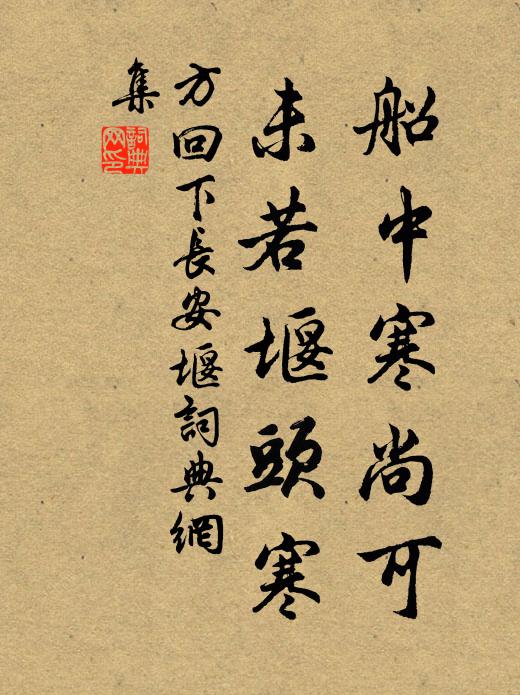 船中寒尚可
未若堰頭寒
方回下長安堰詞典網
集
詞典
网印